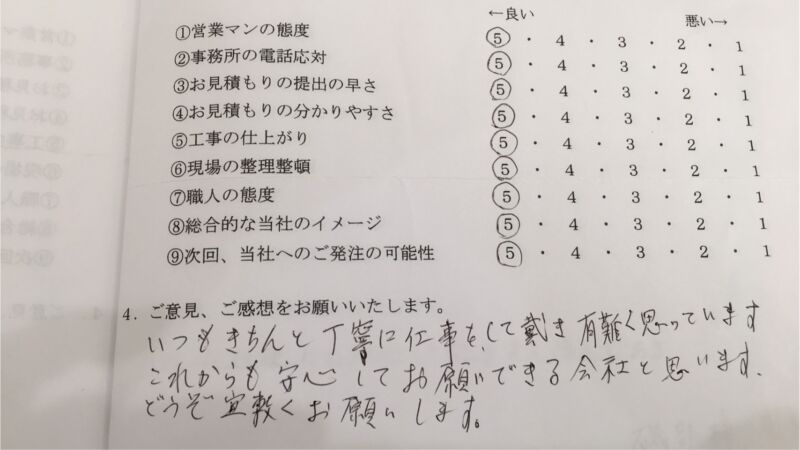 ←良い 悪い→
①営業マンの態度 5 ・ 4 ・ 3 ・ 2 ・ 1
②事務所の電話応対 5 ・ 4 ・ 3 ・ 2 ・ 1
③お見積もりの提出の早さ 5 ・ 4 ・ 3 ・ 2 ・ 1
④お見積もりの分かりやすさ 5 ・ 4 ・ 3 ・ 2 ・ 1
⑤工事の仕上がり 5 ・ 4 ・ 3 ・ 2 ・ 1
⑥現場の整理整頓 5 ・ 4 ・ 3 ・ 2 ・ 1
⑦職人の態度 5 ・ 4 ・ 3 ・ 2 ・ 1
⑧総合的な当社のイメージ 5 ・ 4 ・ 3 ・ 2 ・ 1
⑨次回、当社へのご発注の可能性 5 ・ 4 ・ 3 ・ 2 ・ 1
4．ご意見、ご感想をお願いいたします。
いつもきちんと丁寧に仕事をして戴き有難く思っています
これからも安心してお願いできる会社と思います.
どうぞ宜敷くお願いします。